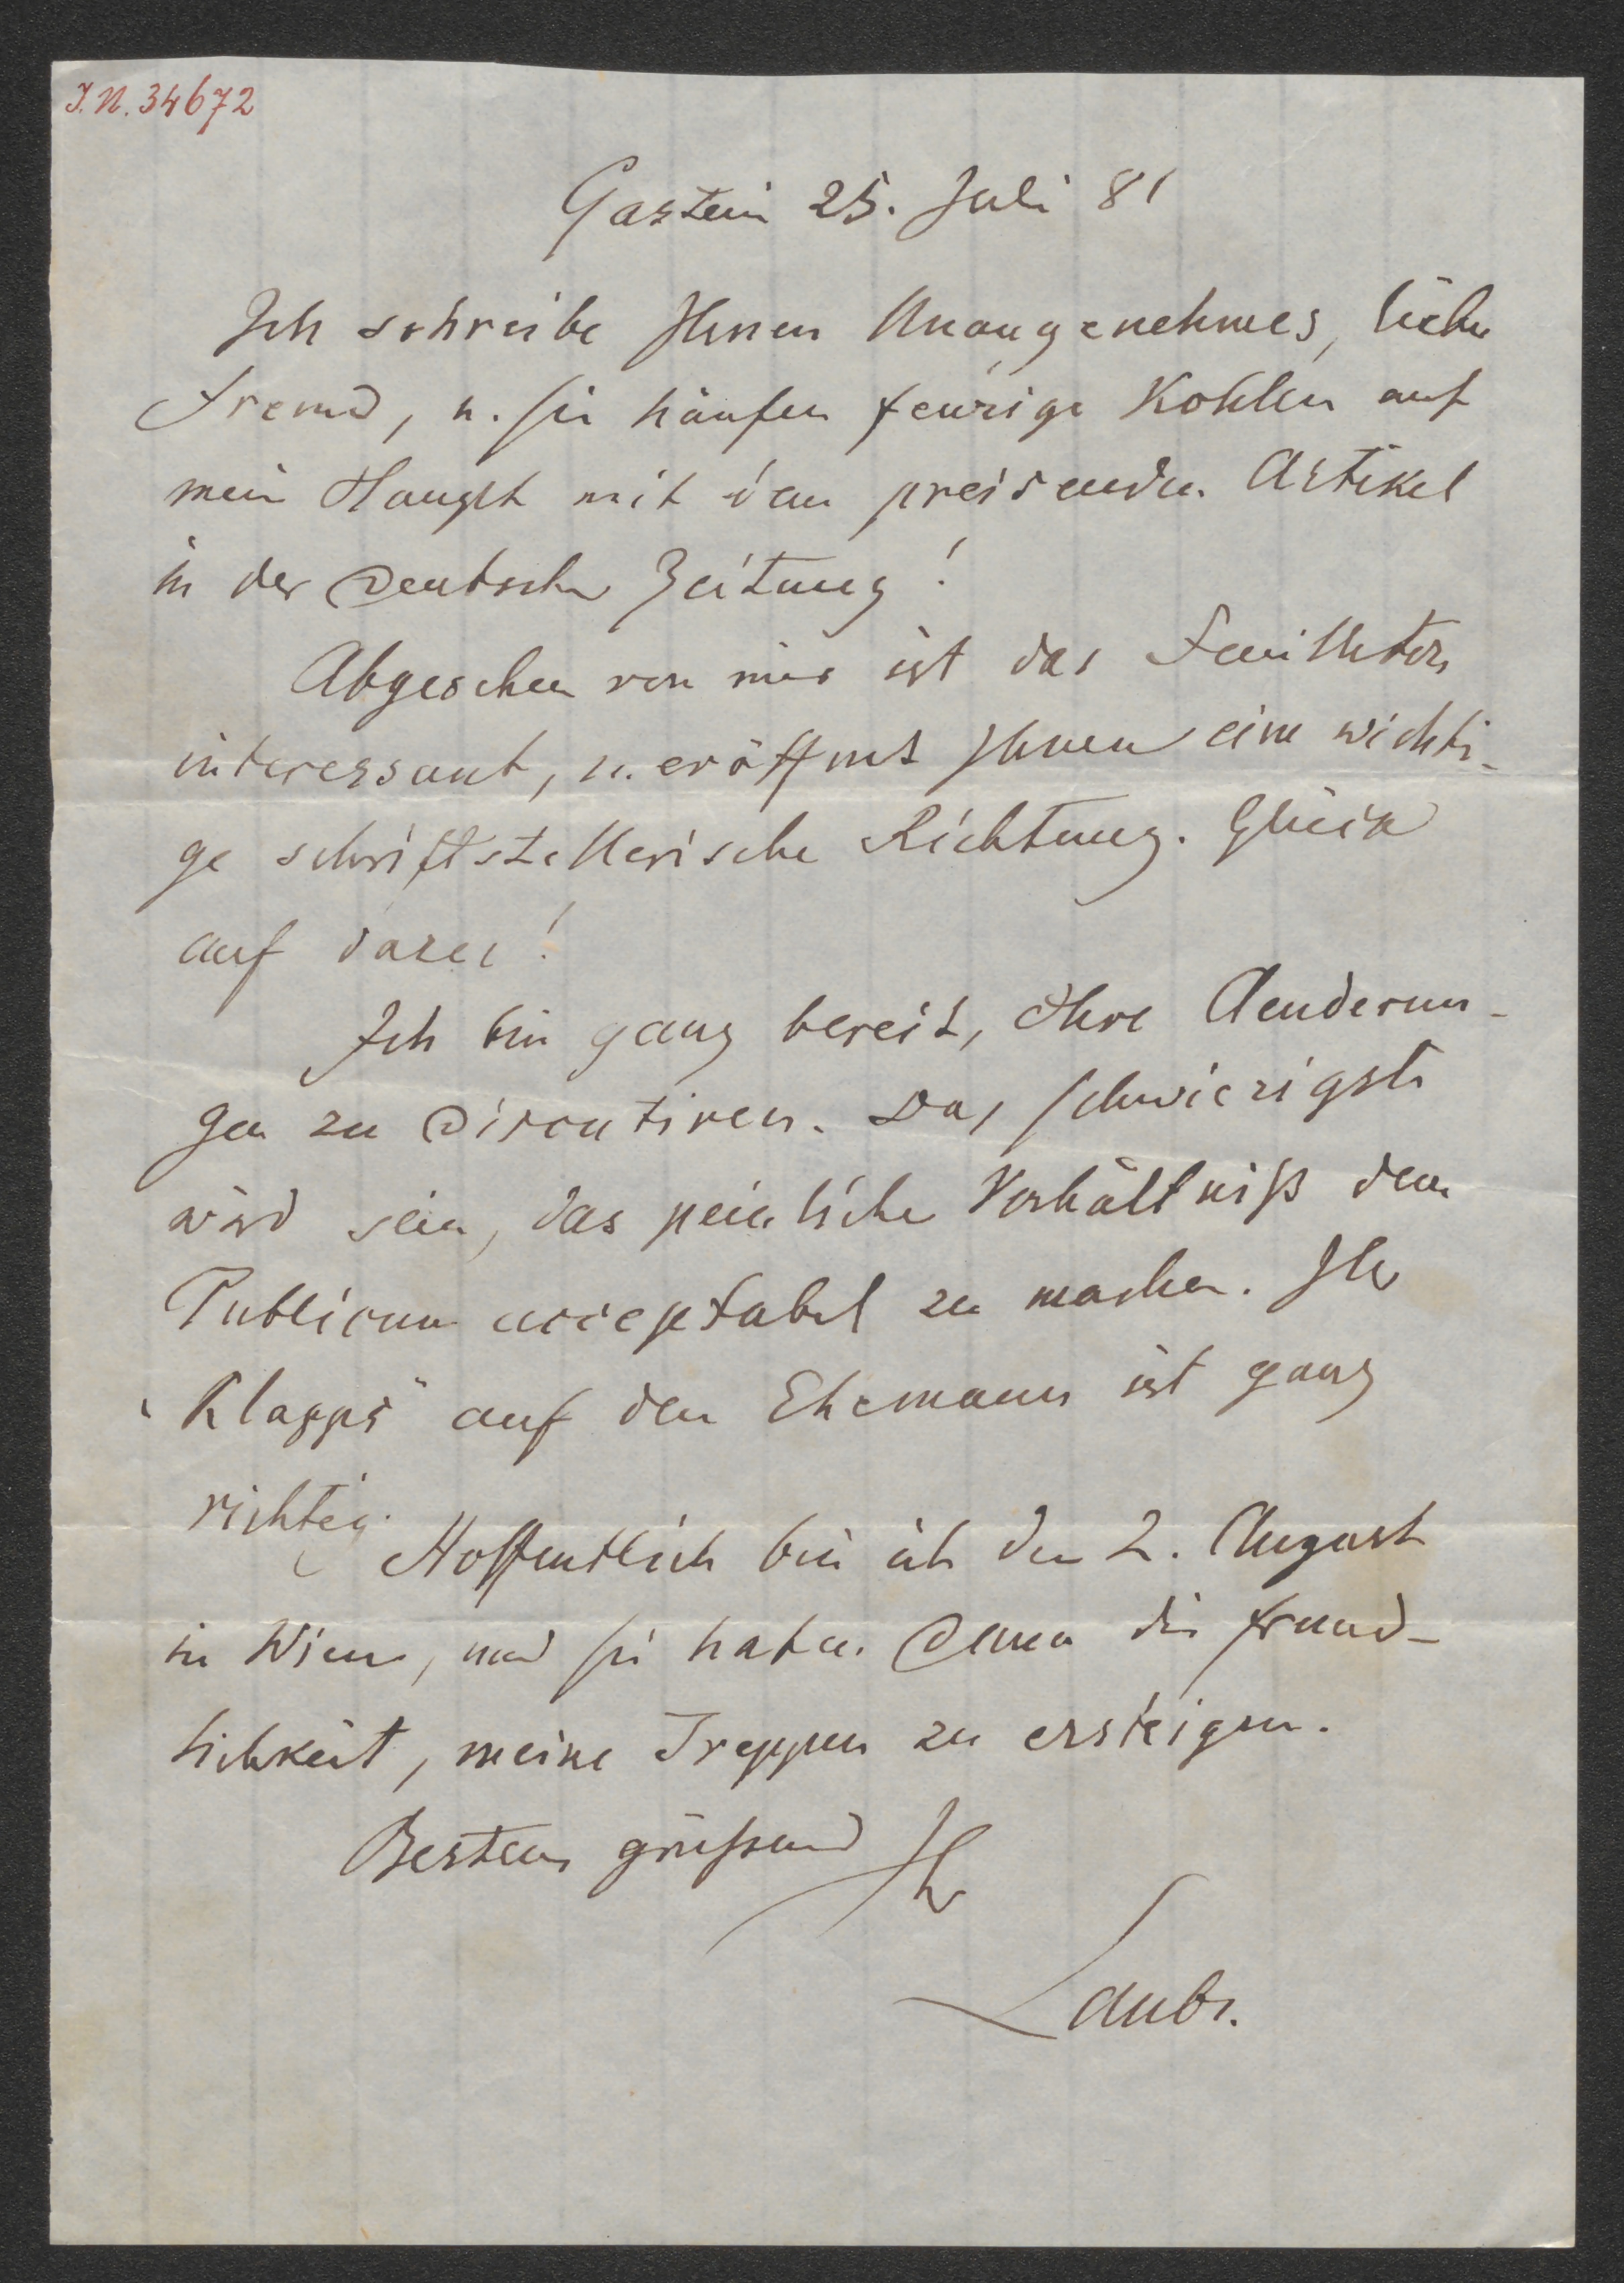 I.N. 34672
Gastein 25. Juli 81
Ich schreibe Ihnen Unangenehmes, lieber
Freund, u. Sie häufen feurige Kohlen auf
mein Haupt mit dem preisenden Artikel
in der Deutschen Zeitung!
Abgesehen von mir ist das Feuilleton
interessant, u. eröffnet Ihnen eine wichti-
ge schriftstellerische Richtung. Glück
auf dazu!
Ich bin ganz bereit, Ihre Aenderun-
gen zu discutiren. Das schwierigste
wird sein, das peinliche Verhältniß dem
Publicum acceptabel zu machen. Ihr
"Klapps" auf den Ehemann ist ganz
richtig.
Hoffentlich bin ich den 2. August
in Wien, und Sie haben dann die Freund-
lichkeit, meine Treppen zu ersteigen.
Bestens grüßend Ihr
Laube.